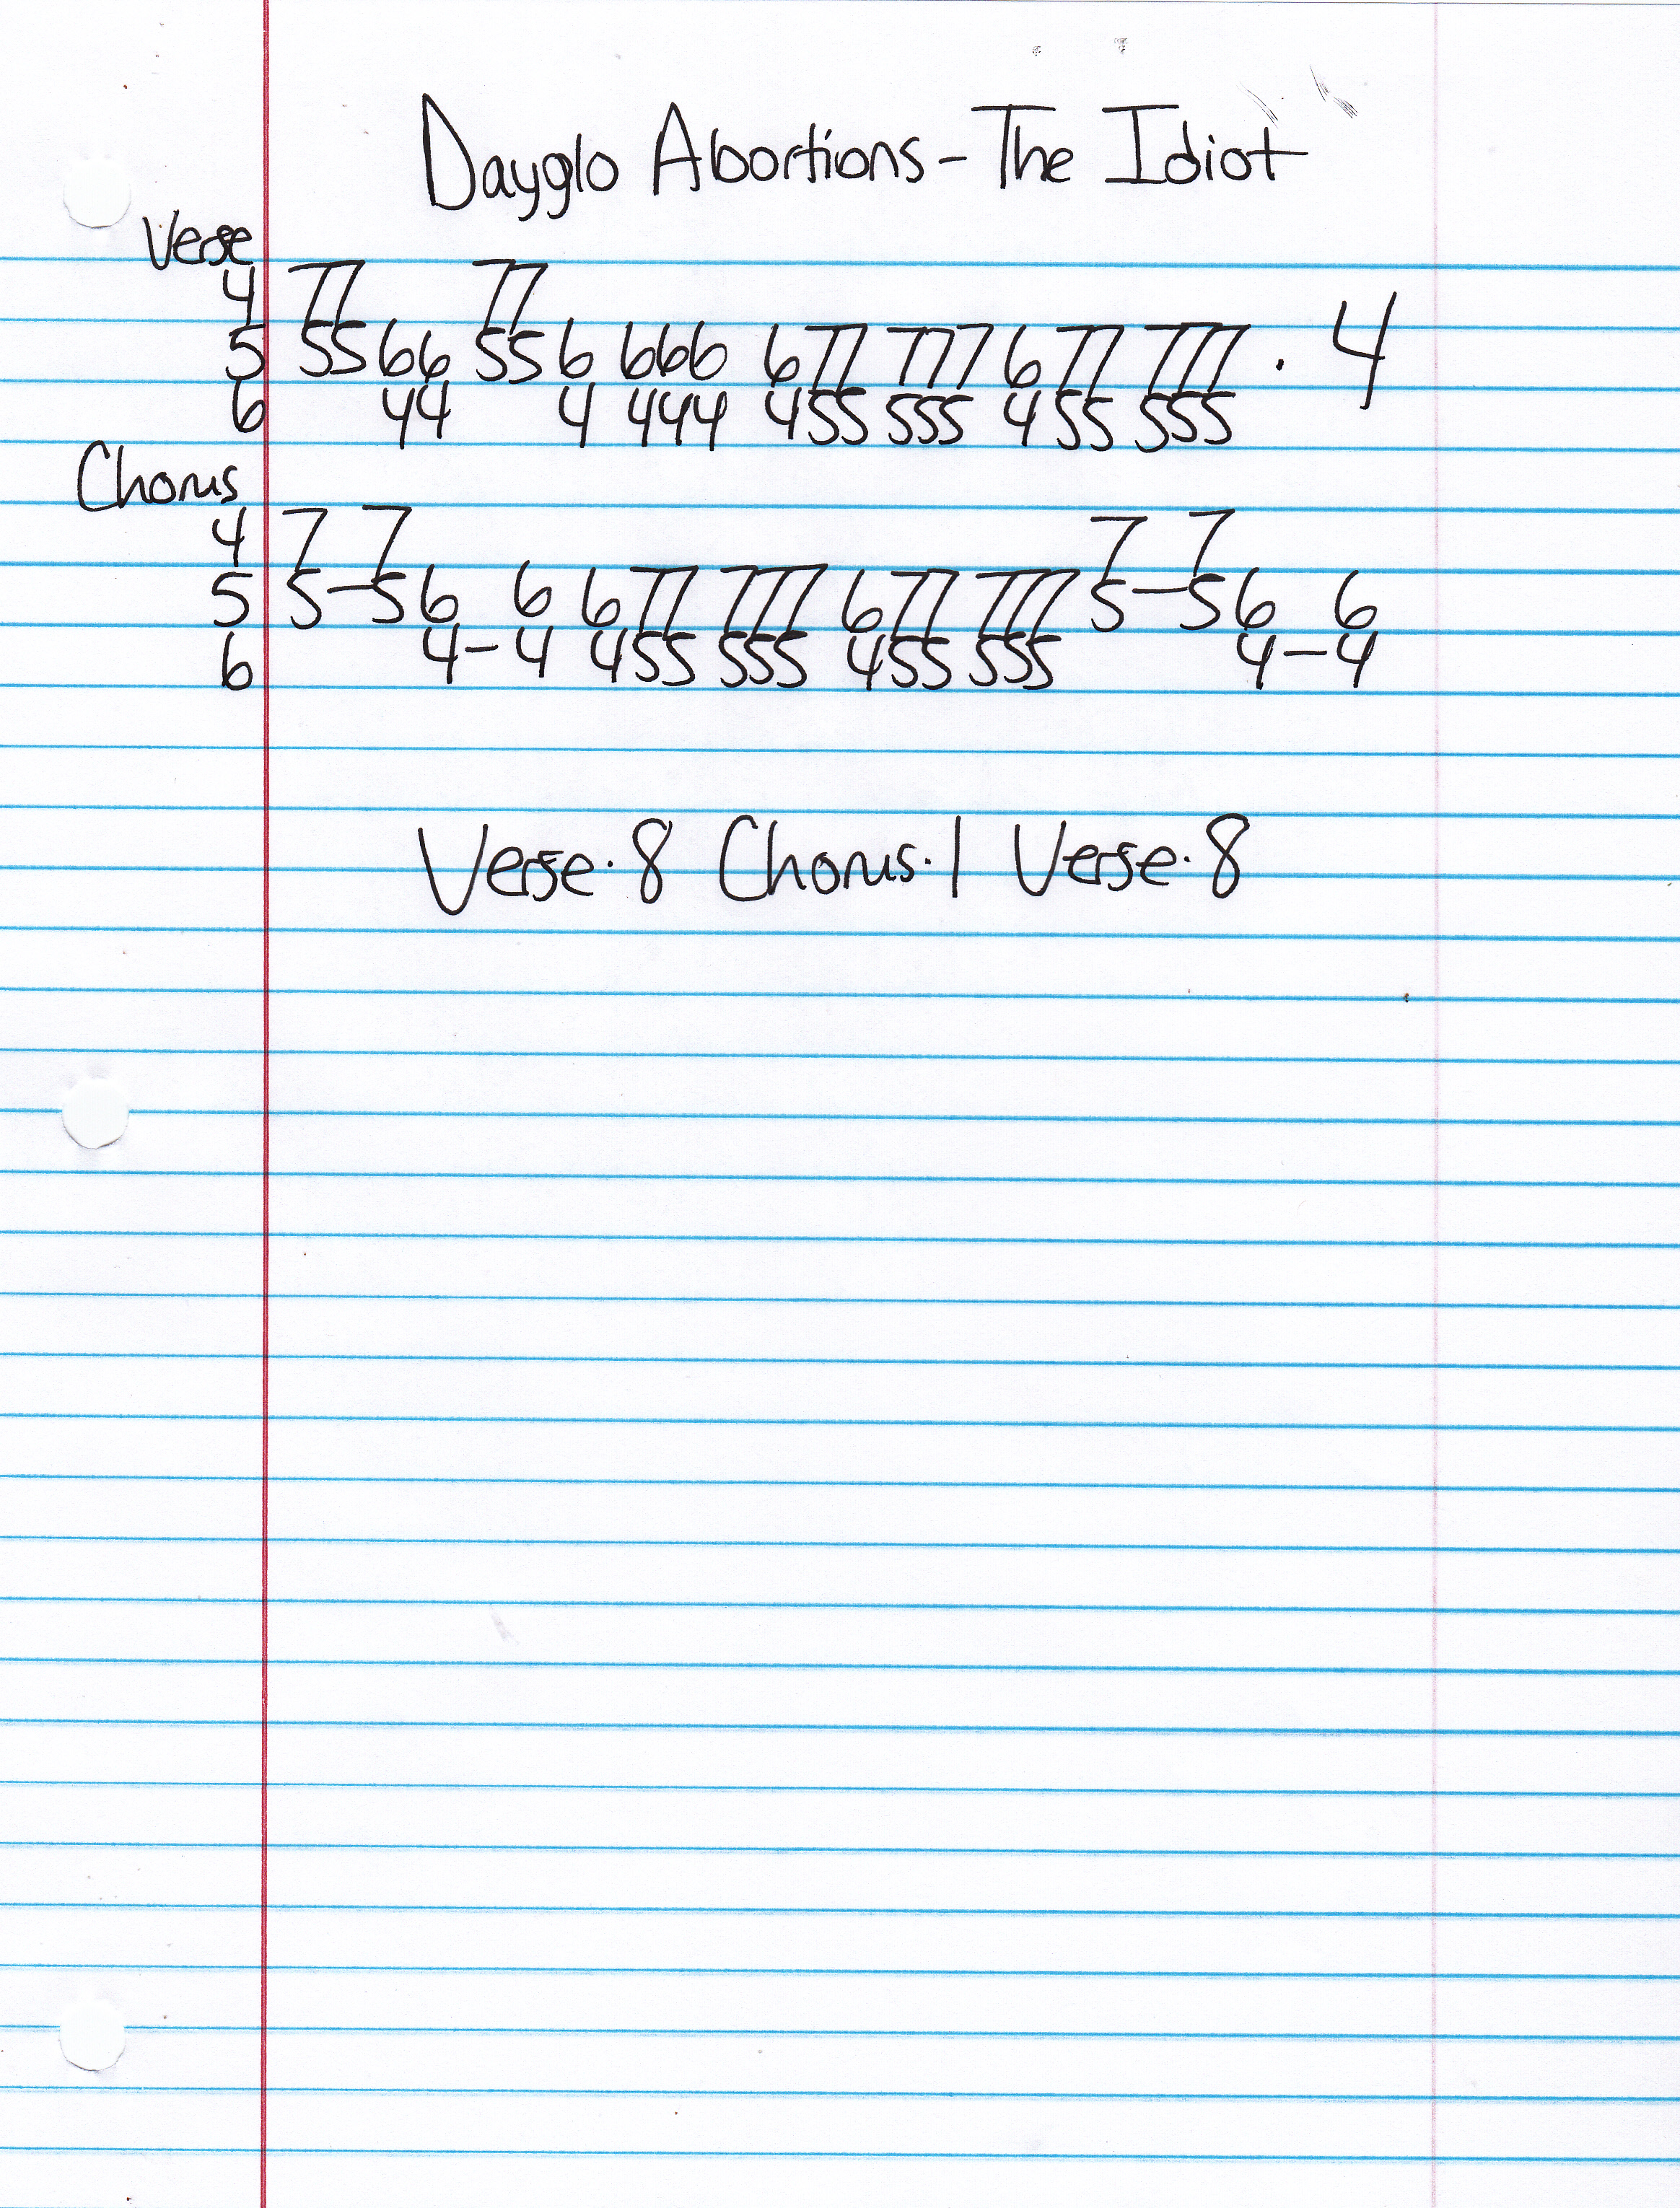 Dayglo Abortions - The Idiot
Verse
4 77 77
5 55 66 55 6 666 677 777 677 777 · 4
6 44 4 444 455 555 455 555
Chorus
4 7 7 7 7
5 5-5 6 6 677 777 677 777 5-5 6 6
6 4-4 455 555 455 555 4-4
Verse·8 Chorus·1 Verse·8